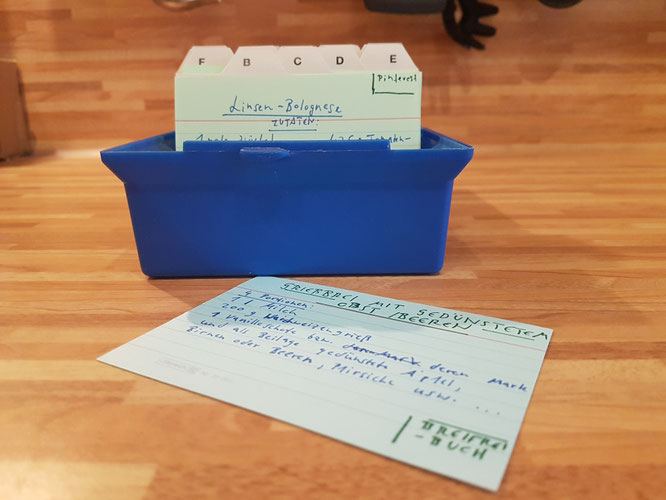 F B C D E
Pinterest
Linsen-Bolognese
ZUTATEN:
GRIEßBREI MIT GEDÜNSTETEM
OBST/BEEREN
4 Portionen:
1 l Milch
200 g Weichweizengrieß
1 Vanilleschote bzw. deren Mark
und als Beilage gedünstete Äpfel,
Birnen oder Beeren, Pfirsiche usw. ...